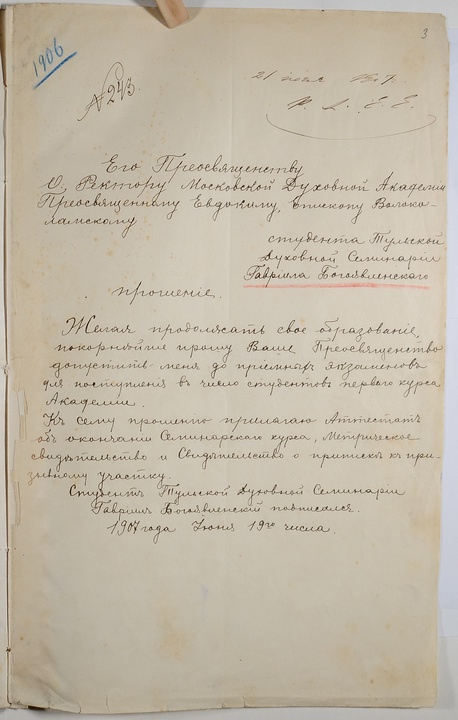 3
1906
№ 243.
21 1907.
Его Преосвященству
О. Ректору Московской Духовной Академіи
Преосвященному Евдокиму, Епископу Волоко-
ламскому
студента Тульской
Духовной Семинаріи
Гавріила Богоявленскаго
прошеніе.
Желая продолжать свое образованіе,
покорнѣйше прошу Ваше Преосвященство
допустить меня до пріемныхъ экзаменовъ
для поступленія въ число студентовъ перваго курса
Академіи.
Къ сему прошенію прилагаю Аттестатъ
объ окончаніи Семинарскаго курса, Метрическое
свидѣтельство и Свидѣтельство о припискѣ къ при-
зывному участку.
Студентъ Тульской Духовной Семинаріи
Гавріилъ Богоявленскій подписался.
1907 года Іюня 19го числа.